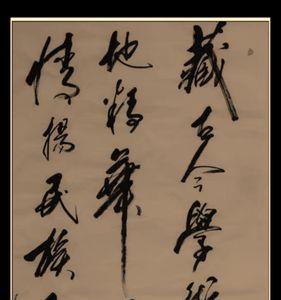 藏古今學術
地精華
情揚民族